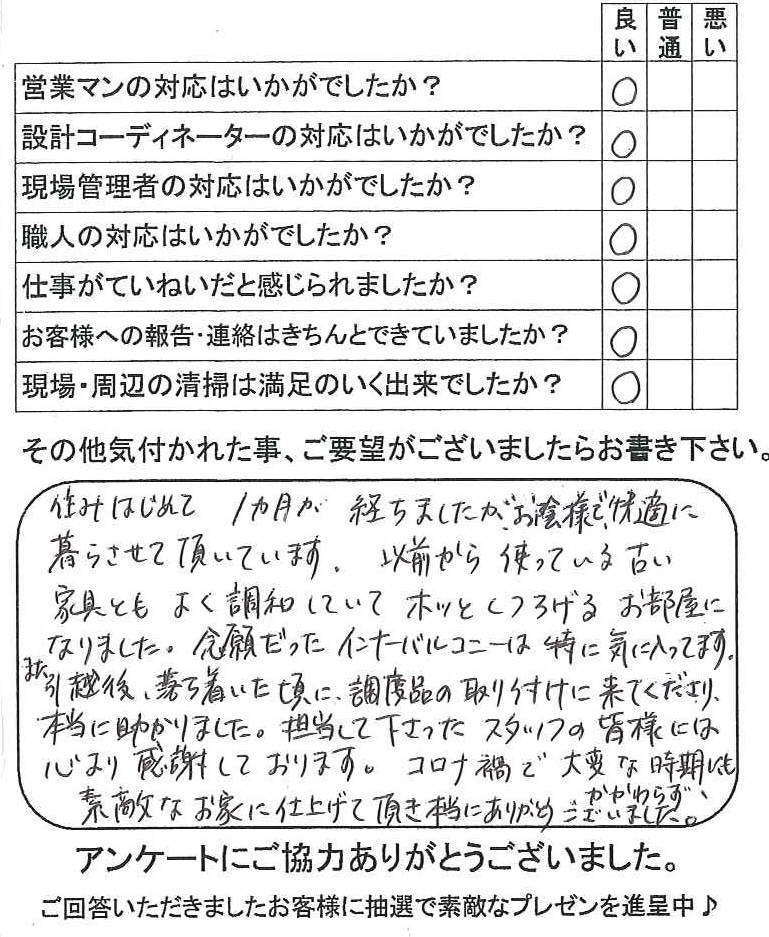 良い 普通 悪い
営業マンの対応はいかがでしたか？ ○
設計コーディネーターの対応はいかがでしたか？ ○
現場管理者の対応はいかがでしたか？ ○
職人の対応はいかがでしたか？ ○
仕事がていねいだと感じられましたか？ ○
お客様への報告・連絡はきちんとできていましたか？ ○
現場・周辺の清掃は満足のいく出来でしたか？ ○
その他気付かれた事、ご要望がございましたらお書き下さい。
住みはじめて 1カ月が 経ちましたが、お陰様で、快適に
暮らさせて頂いています。 以前から 使っている 古い
家具とも よく調和していて ホッとくつろげる お部屋に
なりました。念願だった インナーバルコニーは 特に気に入ってます。
また引越後、落ち着いた頃に、調度品の取り付けに来てくださり、
本当に助かりました。担当して下さった スタッフの 皆様には
心より 感謝しております。 コロナ禍で 大変な時期にも
かかわらず、
素敵なお家に仕上げて頂き本当にありがとうございました。
アンケートにご協力ありがとうございました。
ご回答いただきましたお客様に抽選で素敵なプレゼンを進呈中♪